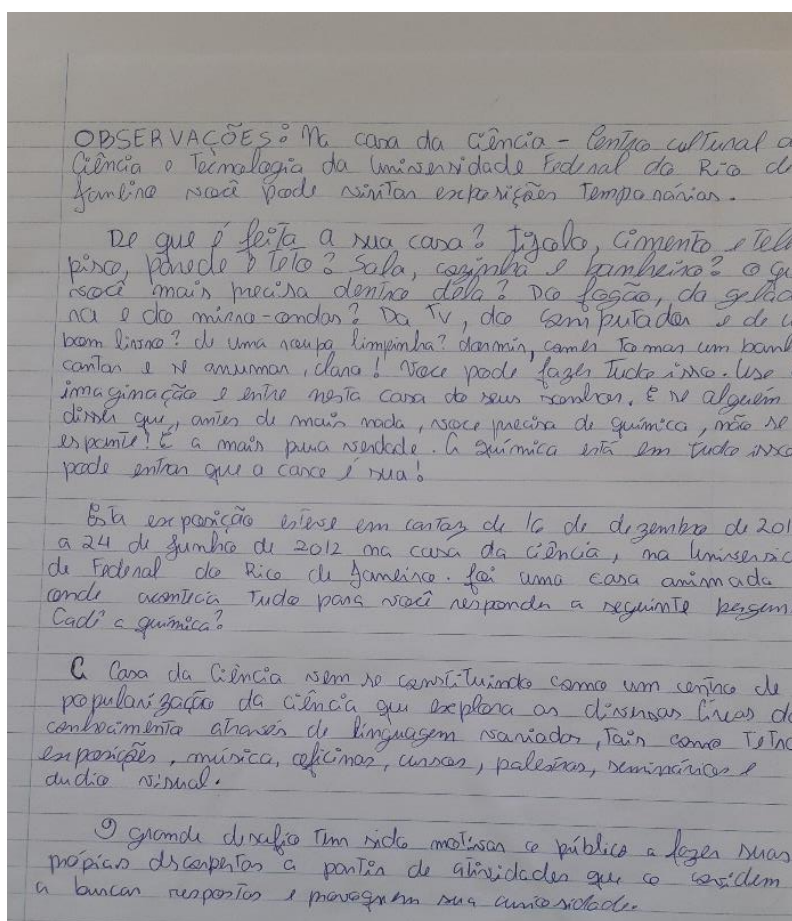 OBSERVAÇÕES: Na casa da Ciência - Centro cultural d
Ciência e Tecnologia da Universidade Federal do Rio de
Janeiro você pode visitar exposições Temporárias.
De que é feita a sua casa? Tijolo, Cimento e Tel
piso, parede e teto? Sala, cozinha e banheiro? o Qu
você mais precisa dentro dela? Do fogão, da gelad
ra e do micro-ondas? Da TV, do computador e de u
bom livro? de uma roupa limpinha? dormir, comer tomar um banh
cantar e se arrumar, claro! Voce pode fazer Tudo isso. Use
imaginação e entre nesta casa do seus sonhos. E se alguém
disser que, antes de mais nada, voce precisa de química, não se
espante! É a mais pura verdade. A química está em tudo isso
pode entrar que a casa é sua!
Esta exposição esteve em cartaz de 16 de dezembro de 201
a 24 de Junho de 2012 na casa da ciência, na Universid
de Federal do Rio de Janeiro. foi uma casa animada
onde acontecia Tudo para você responder a seguinte
Cadê a química?
A Casa da Ciência vem se constituindo como um centro de
popularização da ciência que explora as diversas líneas do
conhecimento através de linguagem variados, Tais como
exposições, música, oficinas, cursos, palestras, seminários e
audio visual.
O grande desafio Tem sido motivar o público a fazer suas
própias a partir de atividades que o convidem
a buscar respostas e provoquem sua curiosidade.